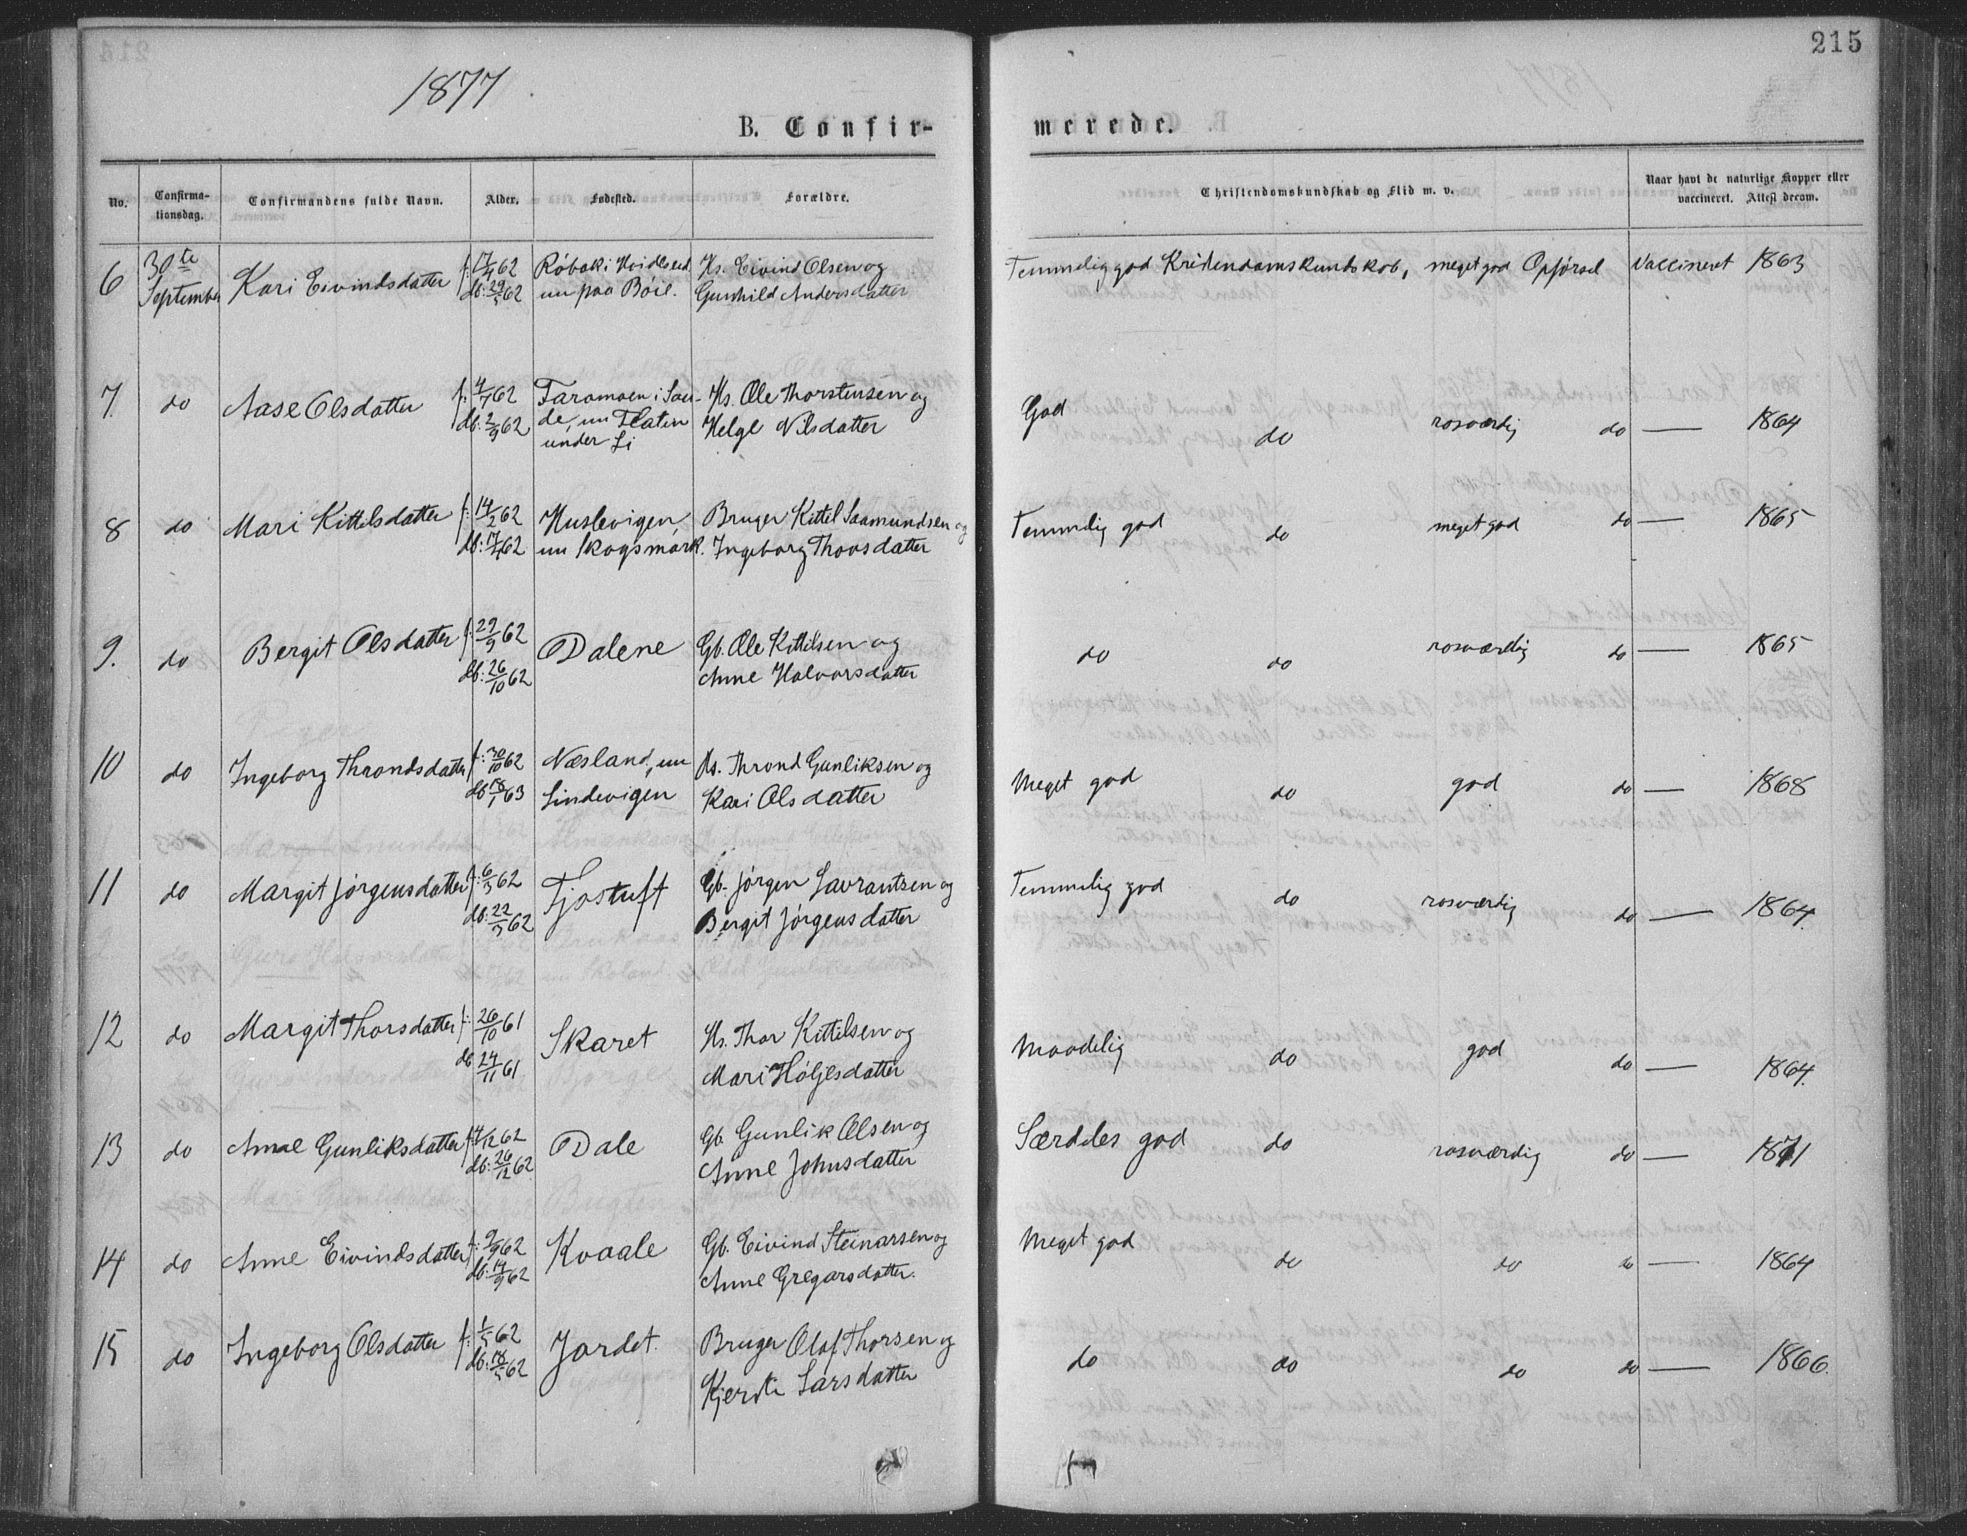 215
1877
B. Confir-
merede.
No.
Confirma-
tionsdag.
Confirmandens fulde Navn.
Alder.
Fødested.
Forældre.
Christendomskundskab og Flid m. v.
Naar havt de naturlige Kopper eller
vaccineret. Attest decom.
6 30te September Kari Eivindsdatter f: 17/4 62 db: 29/5 62
nu paa Böie.
Hs. Eivind Olsen og
Gunhild Andersdatter
Temmelig god Kristendomskundskab, meget god Opførsel Vaccineret 1863
7 do Aase Olsdatter f: 4/7 62 db: 2/9 62
Taramoen i Sau-
de, nu Flatin
under Li
Hs. Ole Thorstensen og
Helge Nilsdatter
God do rosværdig do — 1864
8 do Mari Kittilsdatter f: 14/2 62 db: 17/4 62
Huslevigen,
nu Skogsmark.
Bruger Kittil Saamundsen og
Ingeborg Thorsdatter
Temmelig god do meget god do — 1865
9. do Bergit Olsdatter f: 29/9 62 db: 26/10 62
Dalene
Gb. Ole Kittilsen og
Anne Halvorsdatter
do do rosværdig do — 1865
10 do Ingeborg Throndsdatter f: 30/10 62 db: 18/1 63
Næsland, nu
Lindevigen
Hs. Thrond Gunliksen og
Kari Olsdatter
Meget god do god do — 1868
11 do Margit Jørgensdatter f: 6/3 62 db: 22/3 62
Tjostuft
Gb. Jørgen Lavrantsen og
Bergit Jørgensdatter
Temmelig god do rosværdig do — 1864.
12 do Margit Thorsdatter f: 26/10 61 db 24/11 61
Skaret
Hs. Thor Kittilsen og
Mari Høljesdatter
Maadelig do god do — 1864.
13 do Anne Gunliksdatter f: 4/12 62 db: 26/12 62
Dale
Gb. Gunlik Olsen og
Anne Johnsdatter
Særdeles god do rosværdig do — 1871
14 do Anne Eivindsdatter f: 9/9 62 db: 14/9 62
Kvaale
Gb. Eivind Steinarsen og
Anne Gregarsdatter.
Meget god do do do — 1864
15 do Ingeborg Olsdatter f: 1/5 62 db: 18/5 62
Jordet.
Bruger Olaf Thorsen og
Kjersti Larsdatter
do do do do — 1866.